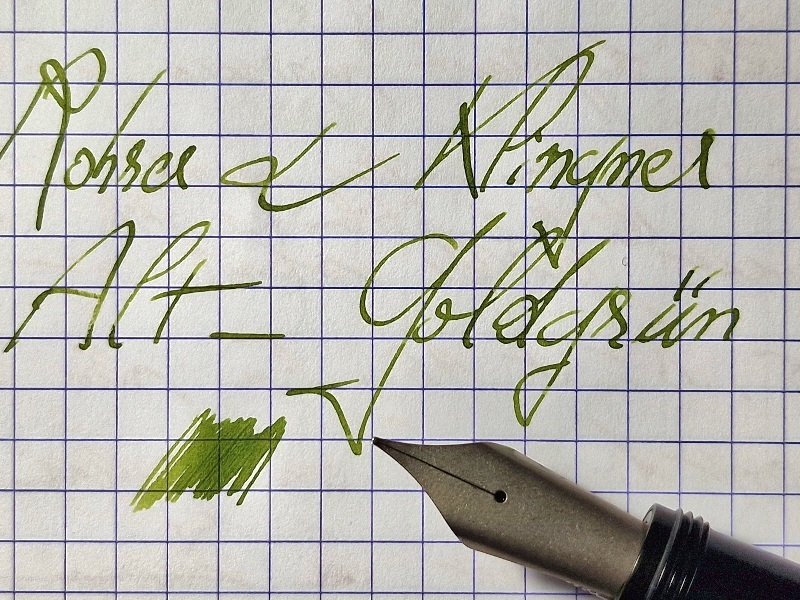 Rohrer & Klingner
Alt-Goldgrün